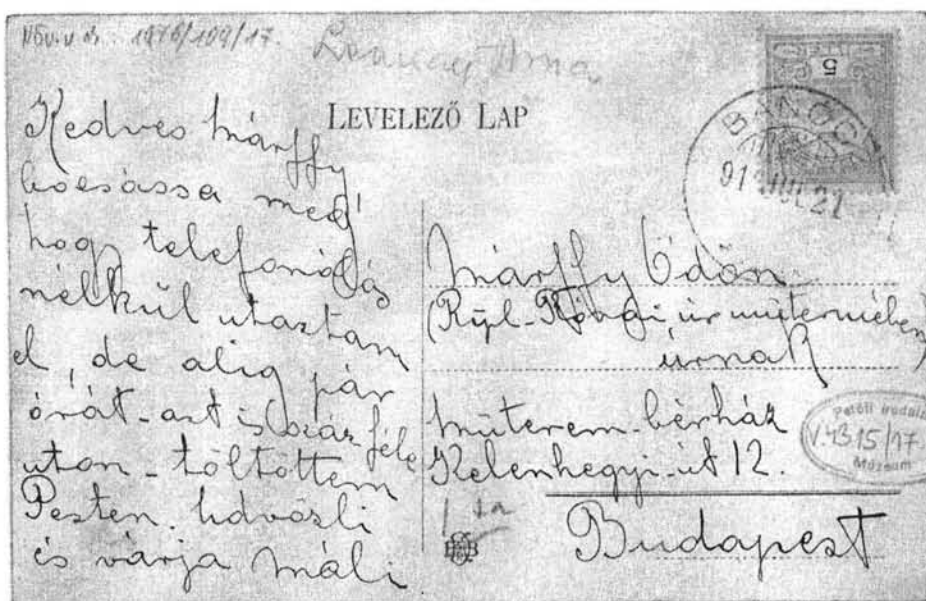 1976/109/17.
LEVELEZŐ LAP
5
BÁNÓC
Kedves Márffy
bocsássa meg
hogy telefonálás
nélkül utaztam
el, de alig pár
órát - azt is száz féle
uton - töltöttem
Pesten. Üdvözli
és várja Máli
Márffy Ödön
(Rijl-Kövái úr műtermében)
úrnak
Műterem-bérház
Kelenhegyi-út 12.
Budapest
Petőfi Irodalmi
V.4315/17
Múzeum